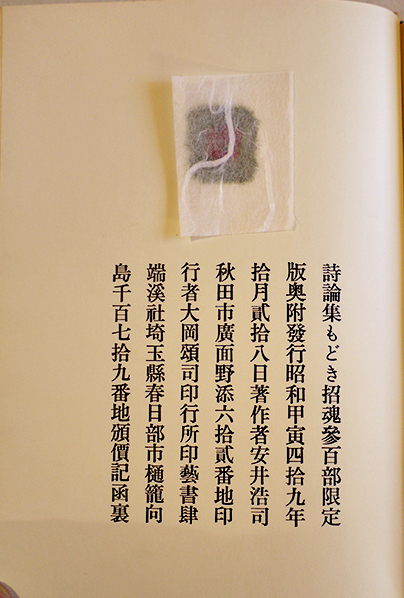 詩論集もどき招魂參百部限定
版奥附發行昭和甲寅四拾九年
拾月貳拾八日著作者安井浩司
秋田市廣面野添六拾貳番地印
行者大岡頌司印行所印藝書肆
端溪社埼玉縣春日部市樋籠向
島千百七拾九番地頒價記函裏